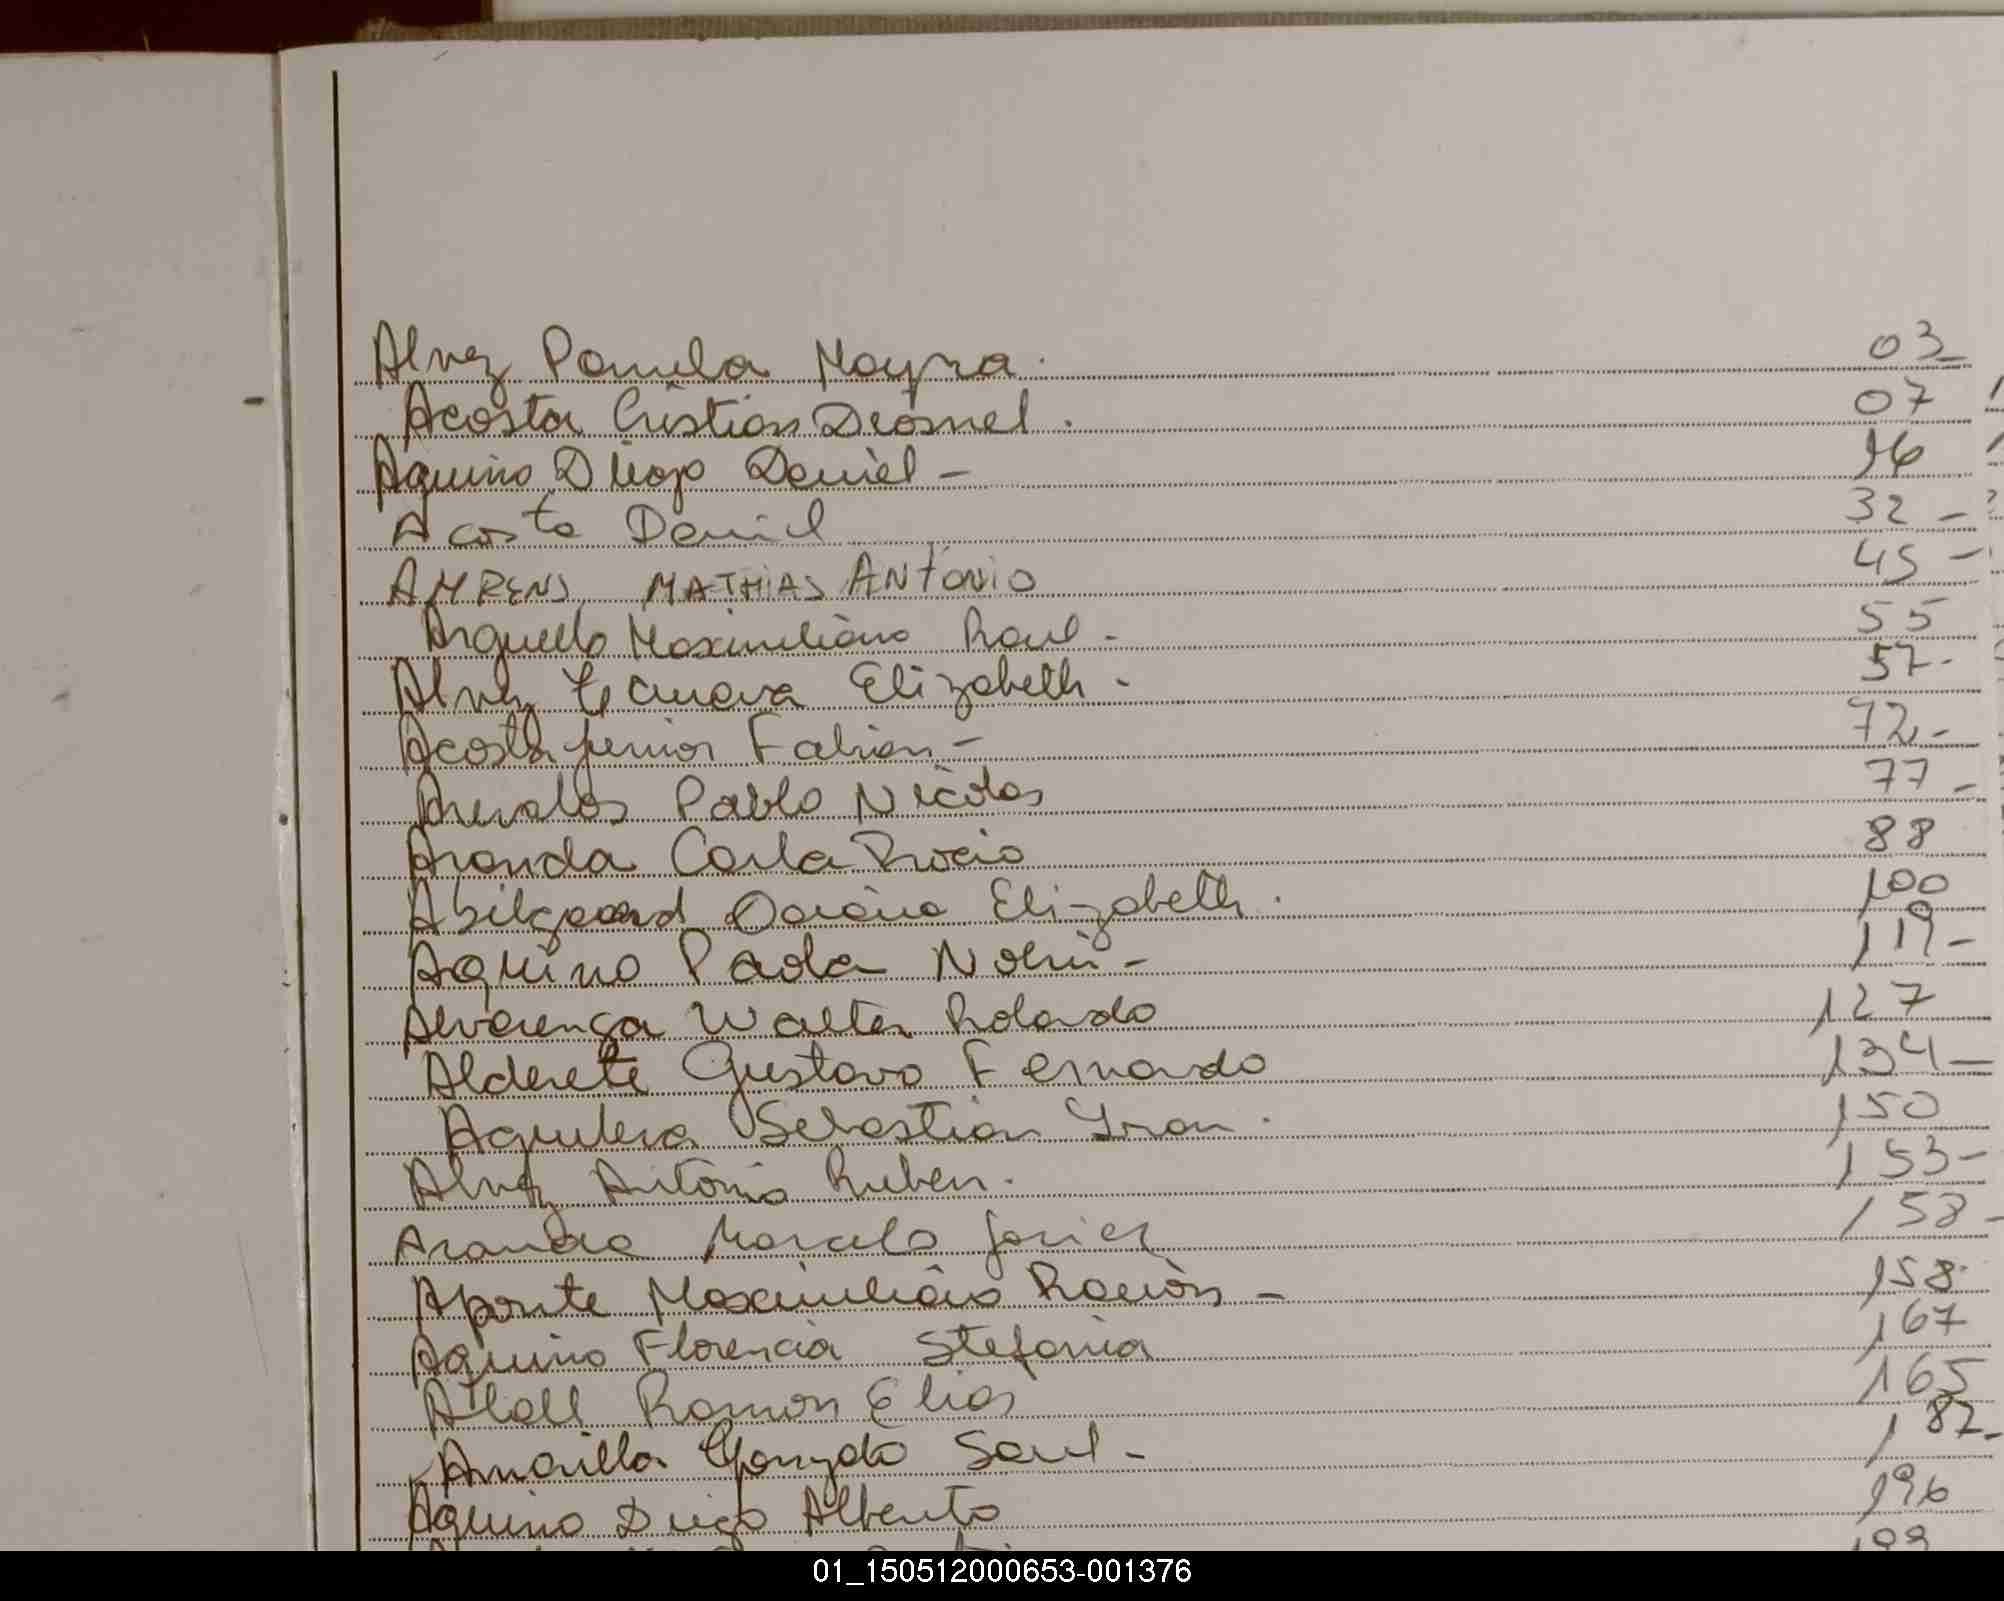 Alvez Pamela Mayra. 03_
Acosta Cristian Deosnel. 07
Aquino Diego Daniel - 16
Acosta Daniel 32 -
AHRENS MATHIAS ANTONIO 45 -
Arguello Maximiliano Raul - 55
Alvez Elizabeth - 57-
Acosta Junior Fabian - 72-
Arevalos Pablo Nicolas 77 -
Aranda Carla Rocio 88
Abilgaard Daiana Elizabeth. 100
Aquino Paola Noemi - 119-
Alvarenga Walter Rolando 127
Alderete Gustavo Fernando 134-
Aguilera Sebastian Ivan. 150
Alvez Antonio Ruben. 153-
Aranda Marcelo Javier 158-
Aponte Maximiliano Ramon - 158-
Aquino Florencia Stefania 167
Ramon Elias 165
Amarilla Gonzalo Saul - 182-
Aquino Diego Alberto 196
01_150512000653-001376